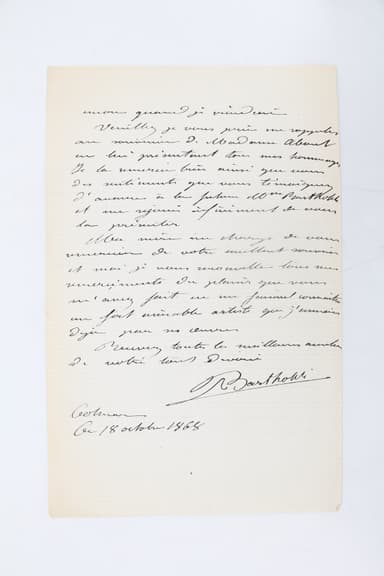 quand je viendrai
Veuillez je vous prie me rappeler
au souvenir de Madame About
en lui présentant tous mes hommages
Je la remercie bien ainsi que vous
des sentiments que vous témoignez
d'avance à la future Mme Bartholdi
et me réjouis infiniment de vous
la présenter
Ma mère me charge de vous
remercier de votre excellent souvenir
et moi je vous renouvelle tous mes
remerciements du plaisir que vous
m'avez fait en me faisant connaître
un fort aimable artiste que j'aimais
déjà par ses œuvres
Recevez toutes les meilleures
de votre tout dévoué
Bartholdi
Colmar
Ce 18 octobre 1868